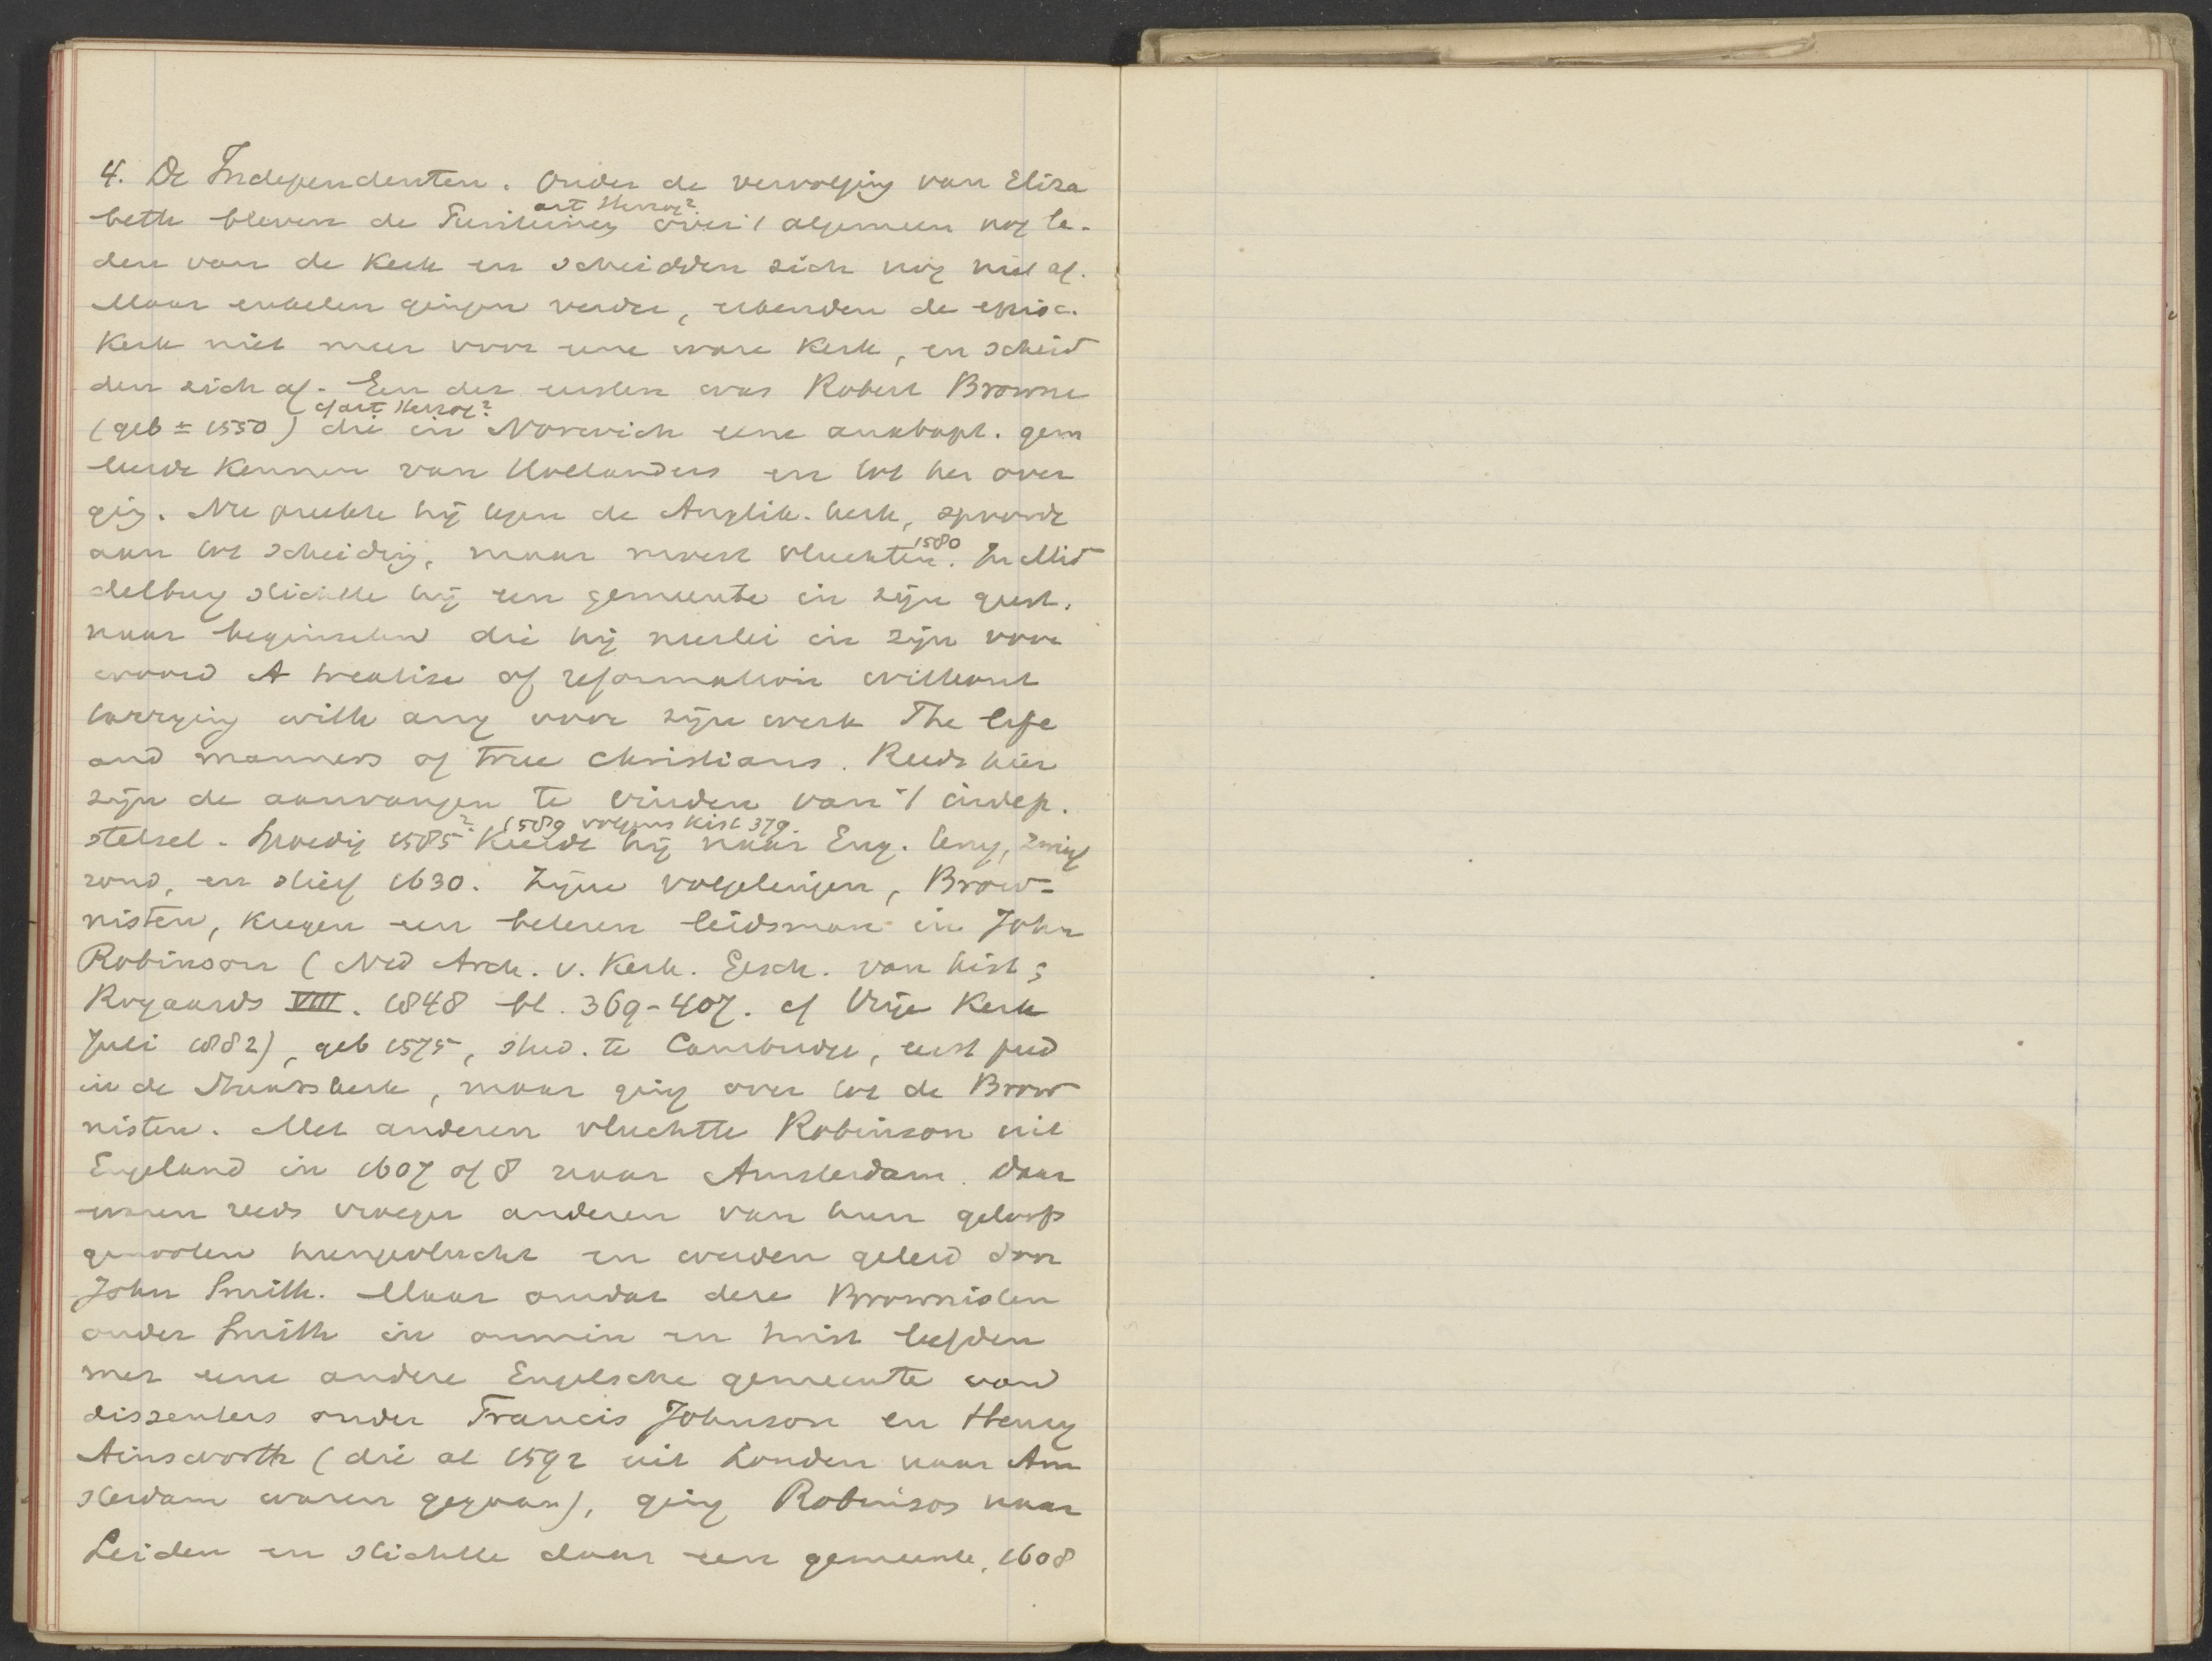 4. De Independenten. Onder de vervolging van Eliza
beth bleven de Puriteinen over 't algemeen nog le-
art Herzog²
den van de Kerk en scheidden zich nog niet af.
Maar enkelen gingen verder, erkenden de episc.
Kerk niet meer voor eene ware Kerk, en scheid
den zich af. Een der eersten was Robert Browne
cf art Herzog²
(geb ± 1550) die in Norwich eene anabapt. gem
leerde kennen van Hollanders en tot her over
ging. Nu preekte hij tegen de Anglik. kerk, spoorde
aan tot scheiding, maar moest vluchten 1580. In Mid
delburg stichtte hij een gemeente in zijn geest,
naar beginselen die hij neerlei in zijn voor
woord A treatise of reformation without
tarrying with any voor zijn werk The life
and manners of true christians. Reeds hier
zijn de aanvangen te vinden van 't indep.
stelsel. Spoedig 1585? keerde hij naar Eng. terug, zwierf
1589 volgens Kist 379.
rond, en stierf 1630. Zijne volgelingen, Brow-
nisten, kregen een beteren leidsman in John
Robinson (Ned Arch. v. Kerk. Gesch. van Kist &
Royaards VIII. 1848 bl. 369-407. cf Vrije Kerk
Juli 1882), geb 1575, stud. te Cambridge, eerst pred
in de Staatskerk, maar ging over tot de Brow
nisten. Met anderen vluchtte Robinson uit
Engeland in 1607 of 8 naar Amsterdam. Daar
waren reeds vroeger anderen van hun geloofs
genooten heengevlucht en werden geleid door
John Smith. Maar omdat deze Brownisten
onder Smith in onmin en twist leefden
met eene andere Engelsche gemeente van
dissenters onder Francis Johnson en Henry
Ainsworth (die al 1592 uit Londen naar Am
sterdam waren gegaan), ging Robinson naar
Leiden en stichtte daar een gemeente, 1608